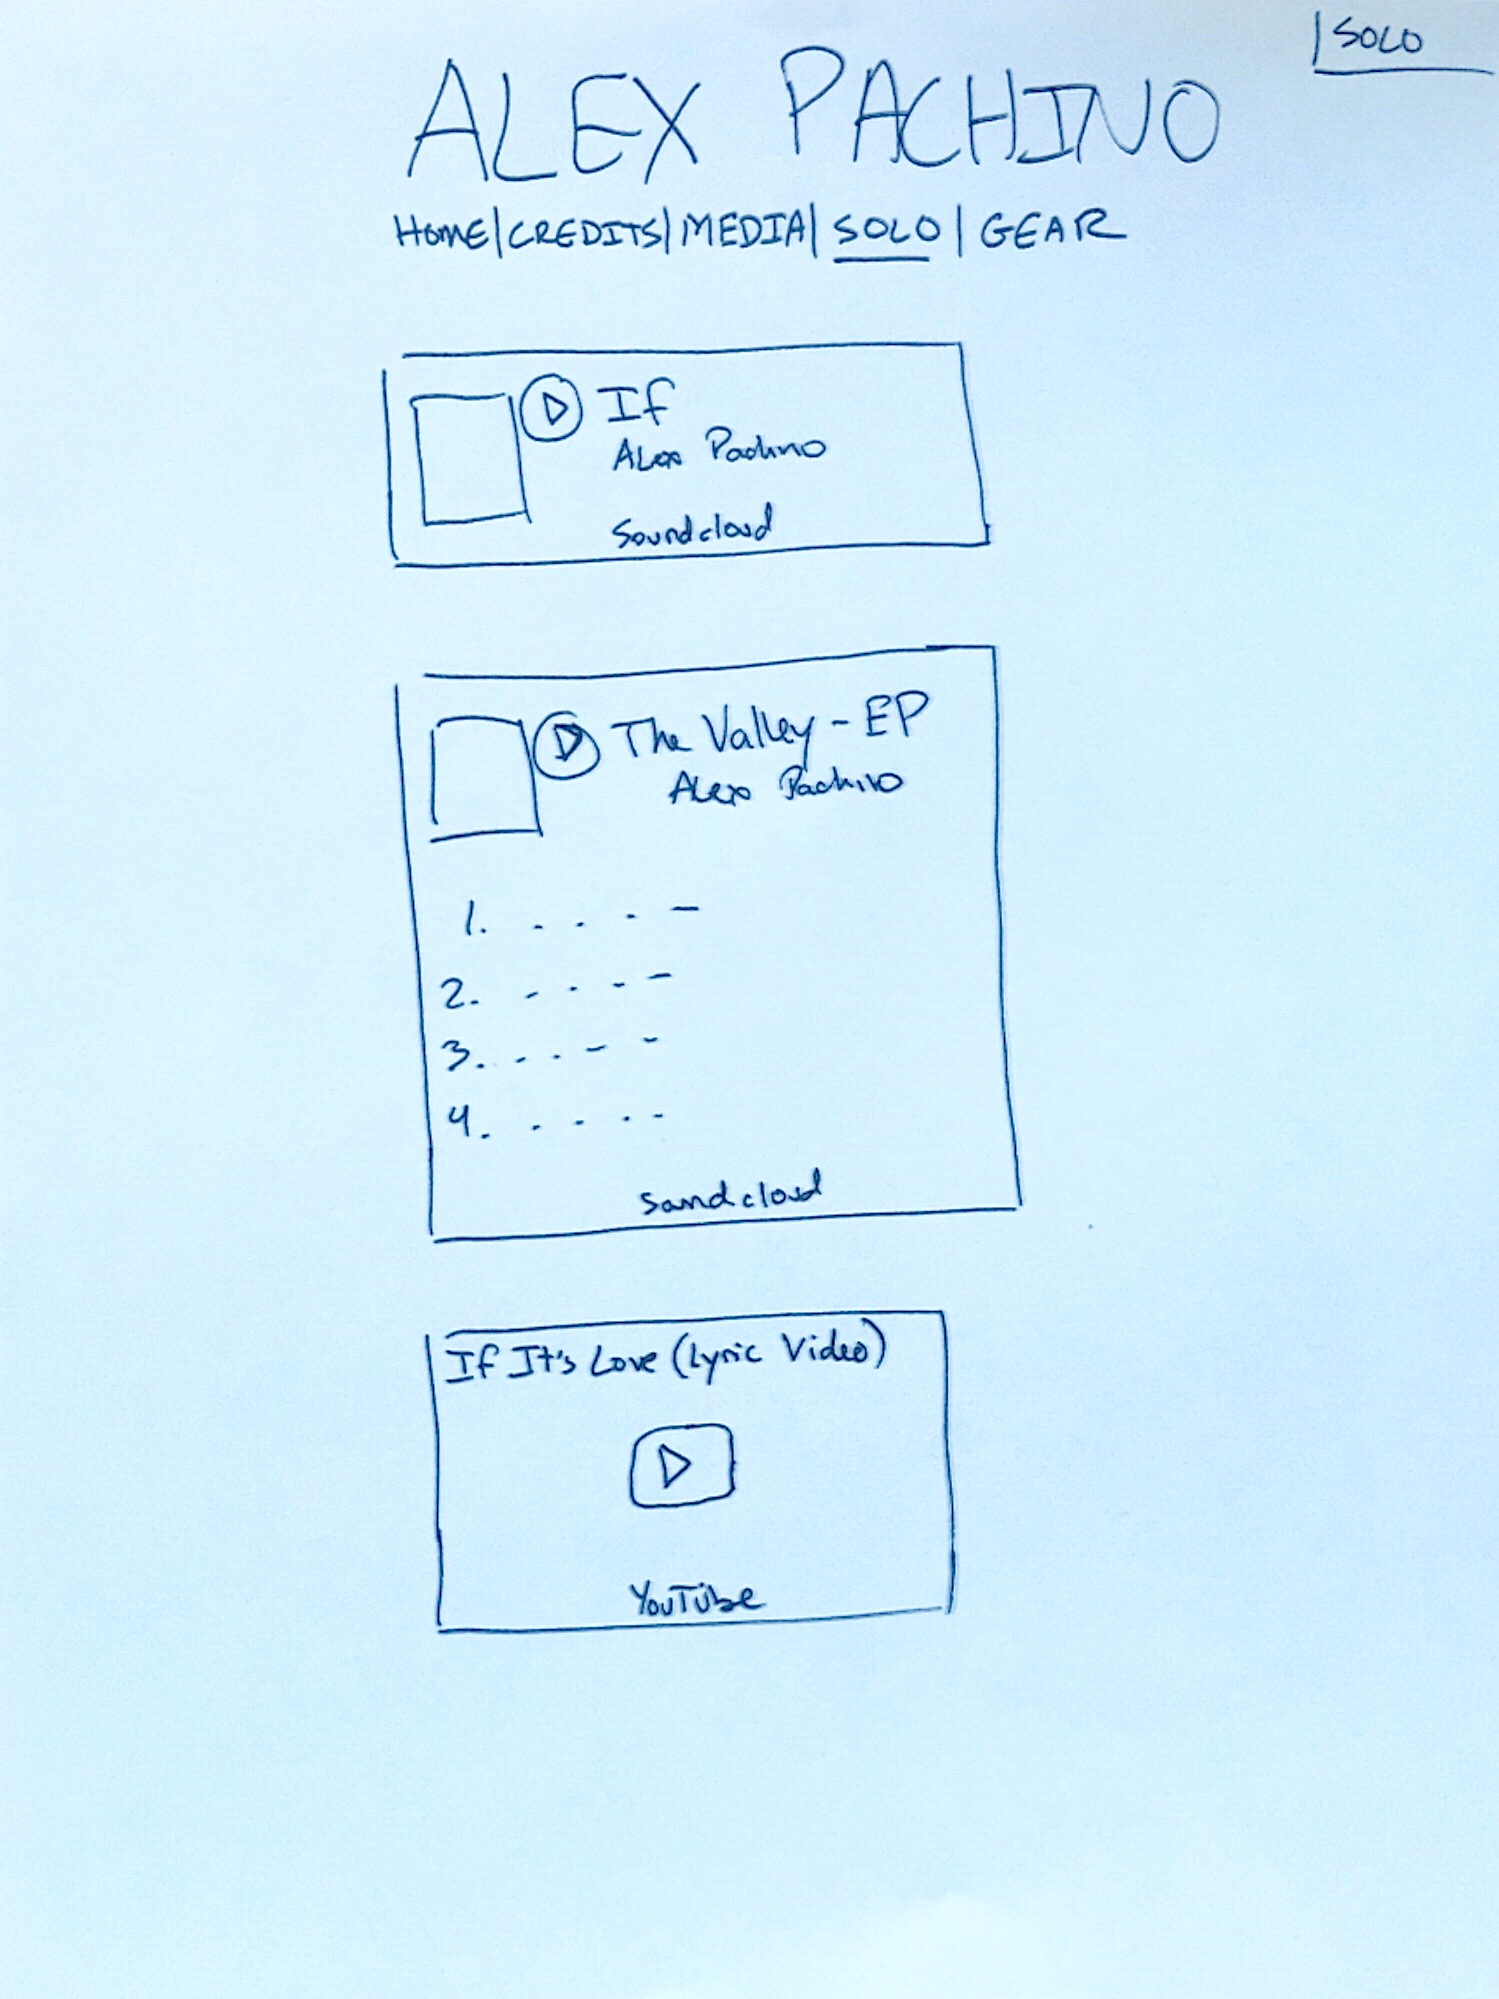 SOLO
ALEX PACHINO
HOME|CREDITS|MEDIA|SOLO|GEAR
If
Alex Pachino
Soundcloud
The Valley - EP
Alex Pachino
1. . . . -
2. - . - -
3. - . - -
4. . . . -
Soundcloud
If It's Love (Lyric Video)
YouTube